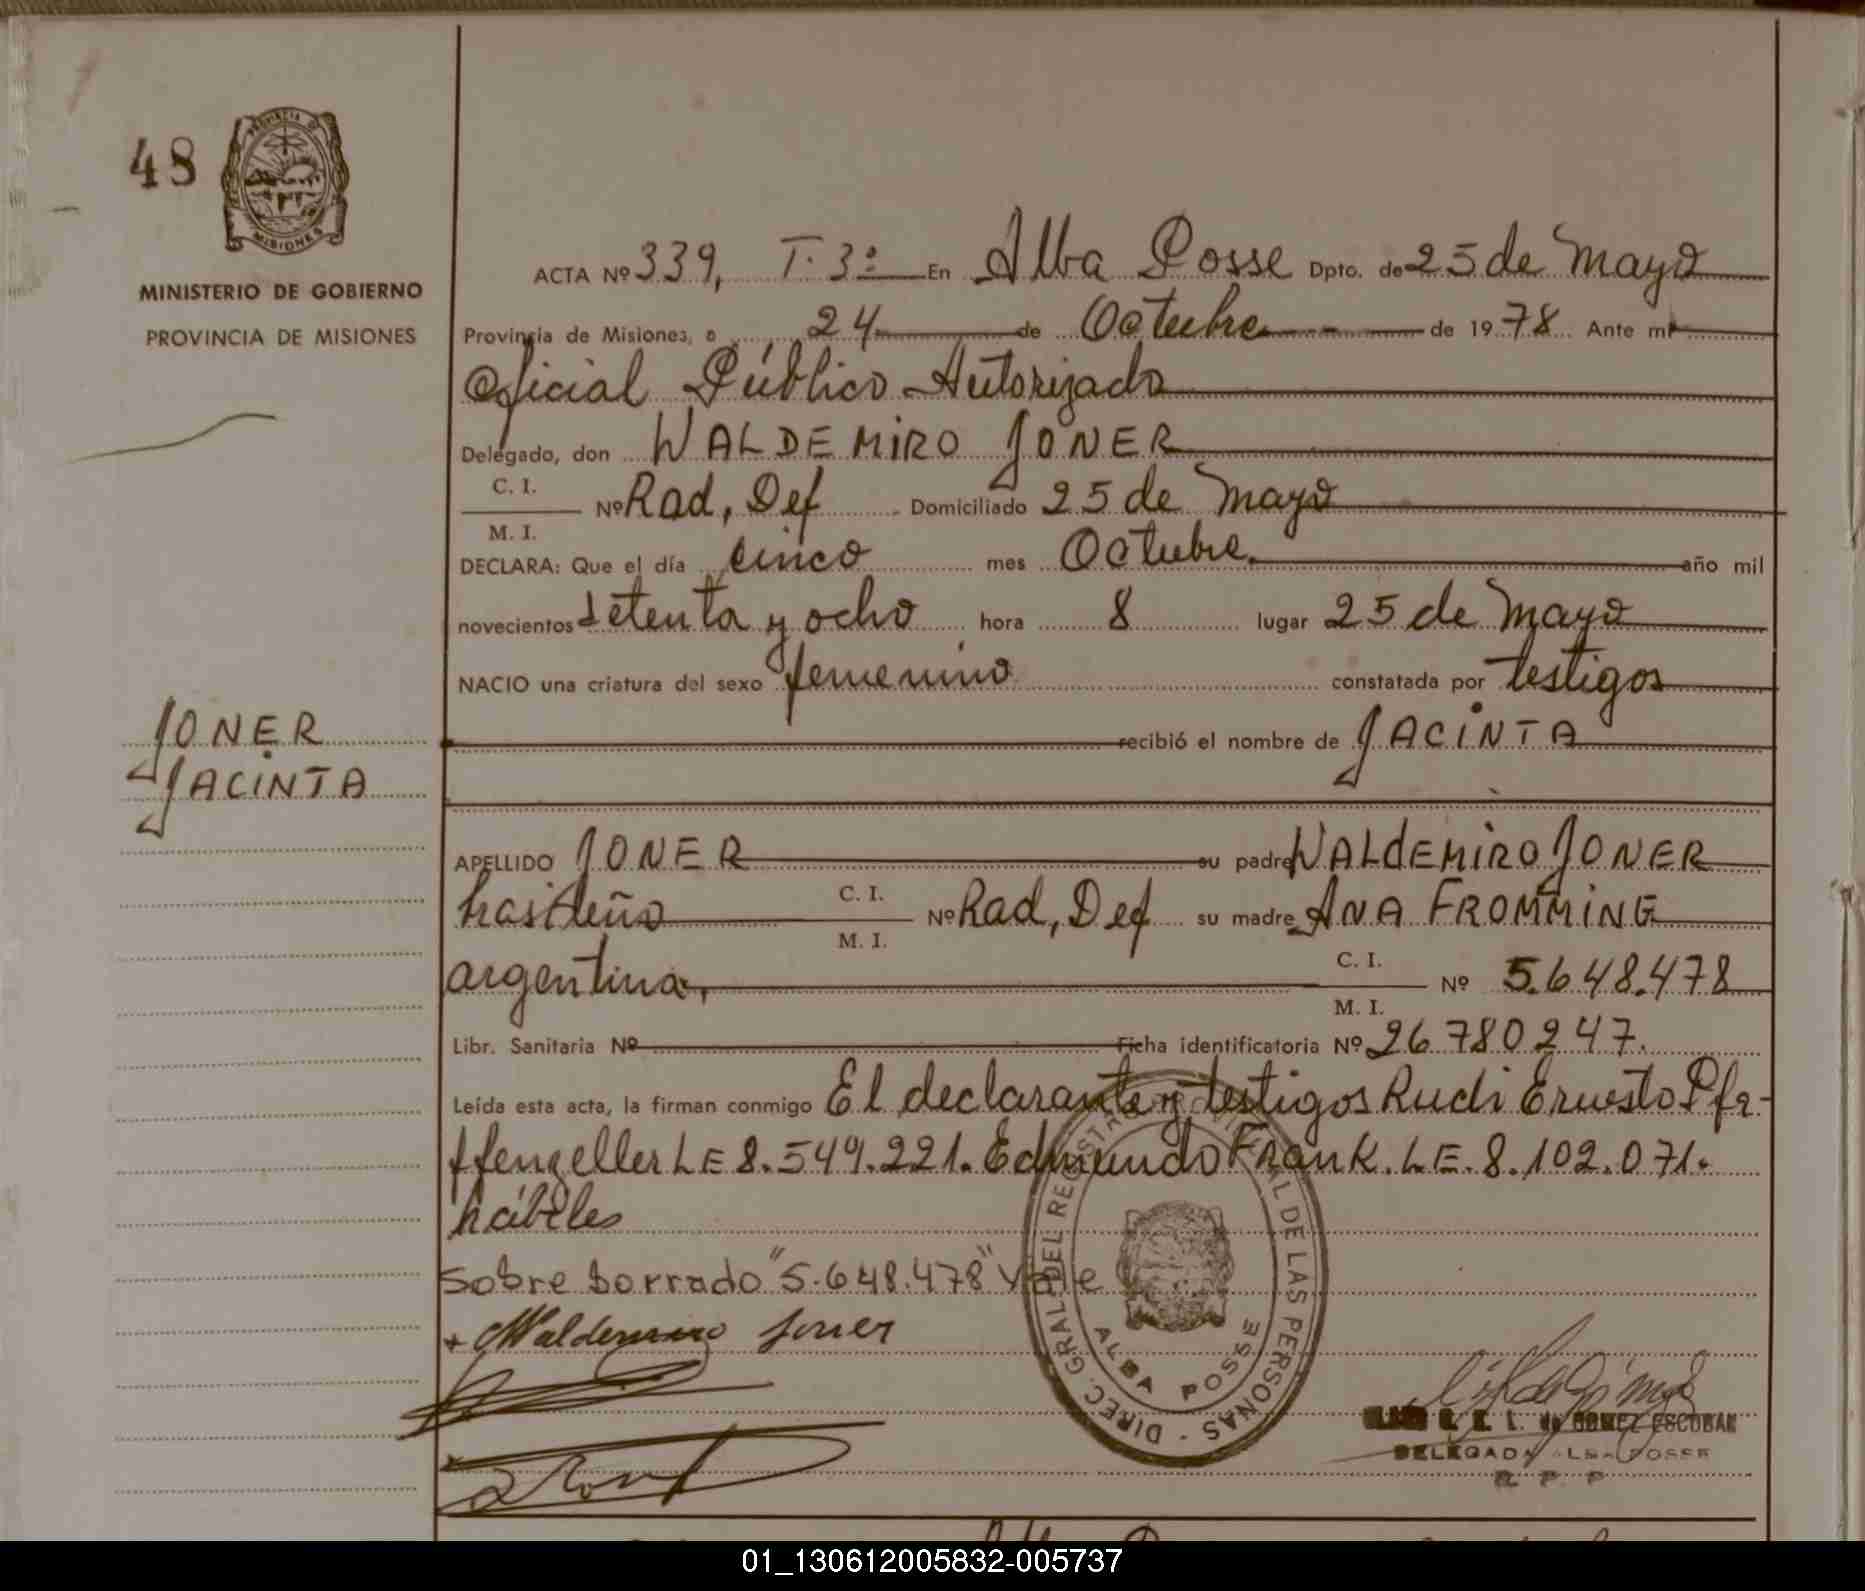 48
PROVINCIA DE
MISIONES
MINISTERIO DE GOBIERNO
PROVINCIA DE MISIONES
JONER
JACINTA
ACTA Nº 339, T. 3º En Alba Posse Dpto. de 25 de Mayo
Provincia de Misiones, a 24 de Octubre de 1978 Ante mi
Oficial Público Autorizado
Delegado, don WALDEMIRO JONER
C. I.
Nº Rad, Def Domiciliado 25 de Mayo
M. I.
DECLARA: Que el día cinco mes Octubre año mil
novecientos setenta y ocho hora 8 lugar 25 de Mayo
NACIO una criatura del sexo femenino constatada por testigos
recibió el nombre de JACINTA
APELLIDO JONER su padre WALDEMIRO JONER
C. I.
brasileño Nº Rad, Def su madre ANA FROMMING
M. I.
C. I.
argentina, Nº 5.648.478
M. I.
Libr. Sanitaria Nº Ficha identificatoria Nº 26780247.
Leída esta acta, la firman conmigo El declarante y testigos Rudi Ernesto Pfa-
ffenzeller LE 8.549.221. Edmundo Frank. L.E. 8.102.071.
hábiles
Sobre borrado "5.648.478" Vale
Waldemiro Joner
DIREC. GRAL. DEL REGISTRO PROVINCIAL DE LAS PERSONAS
ALBA POSSE
GOMEZ ESCOBAR
DELEGADA ALBA POSSE
R. P. P.
01_130612005832-005737